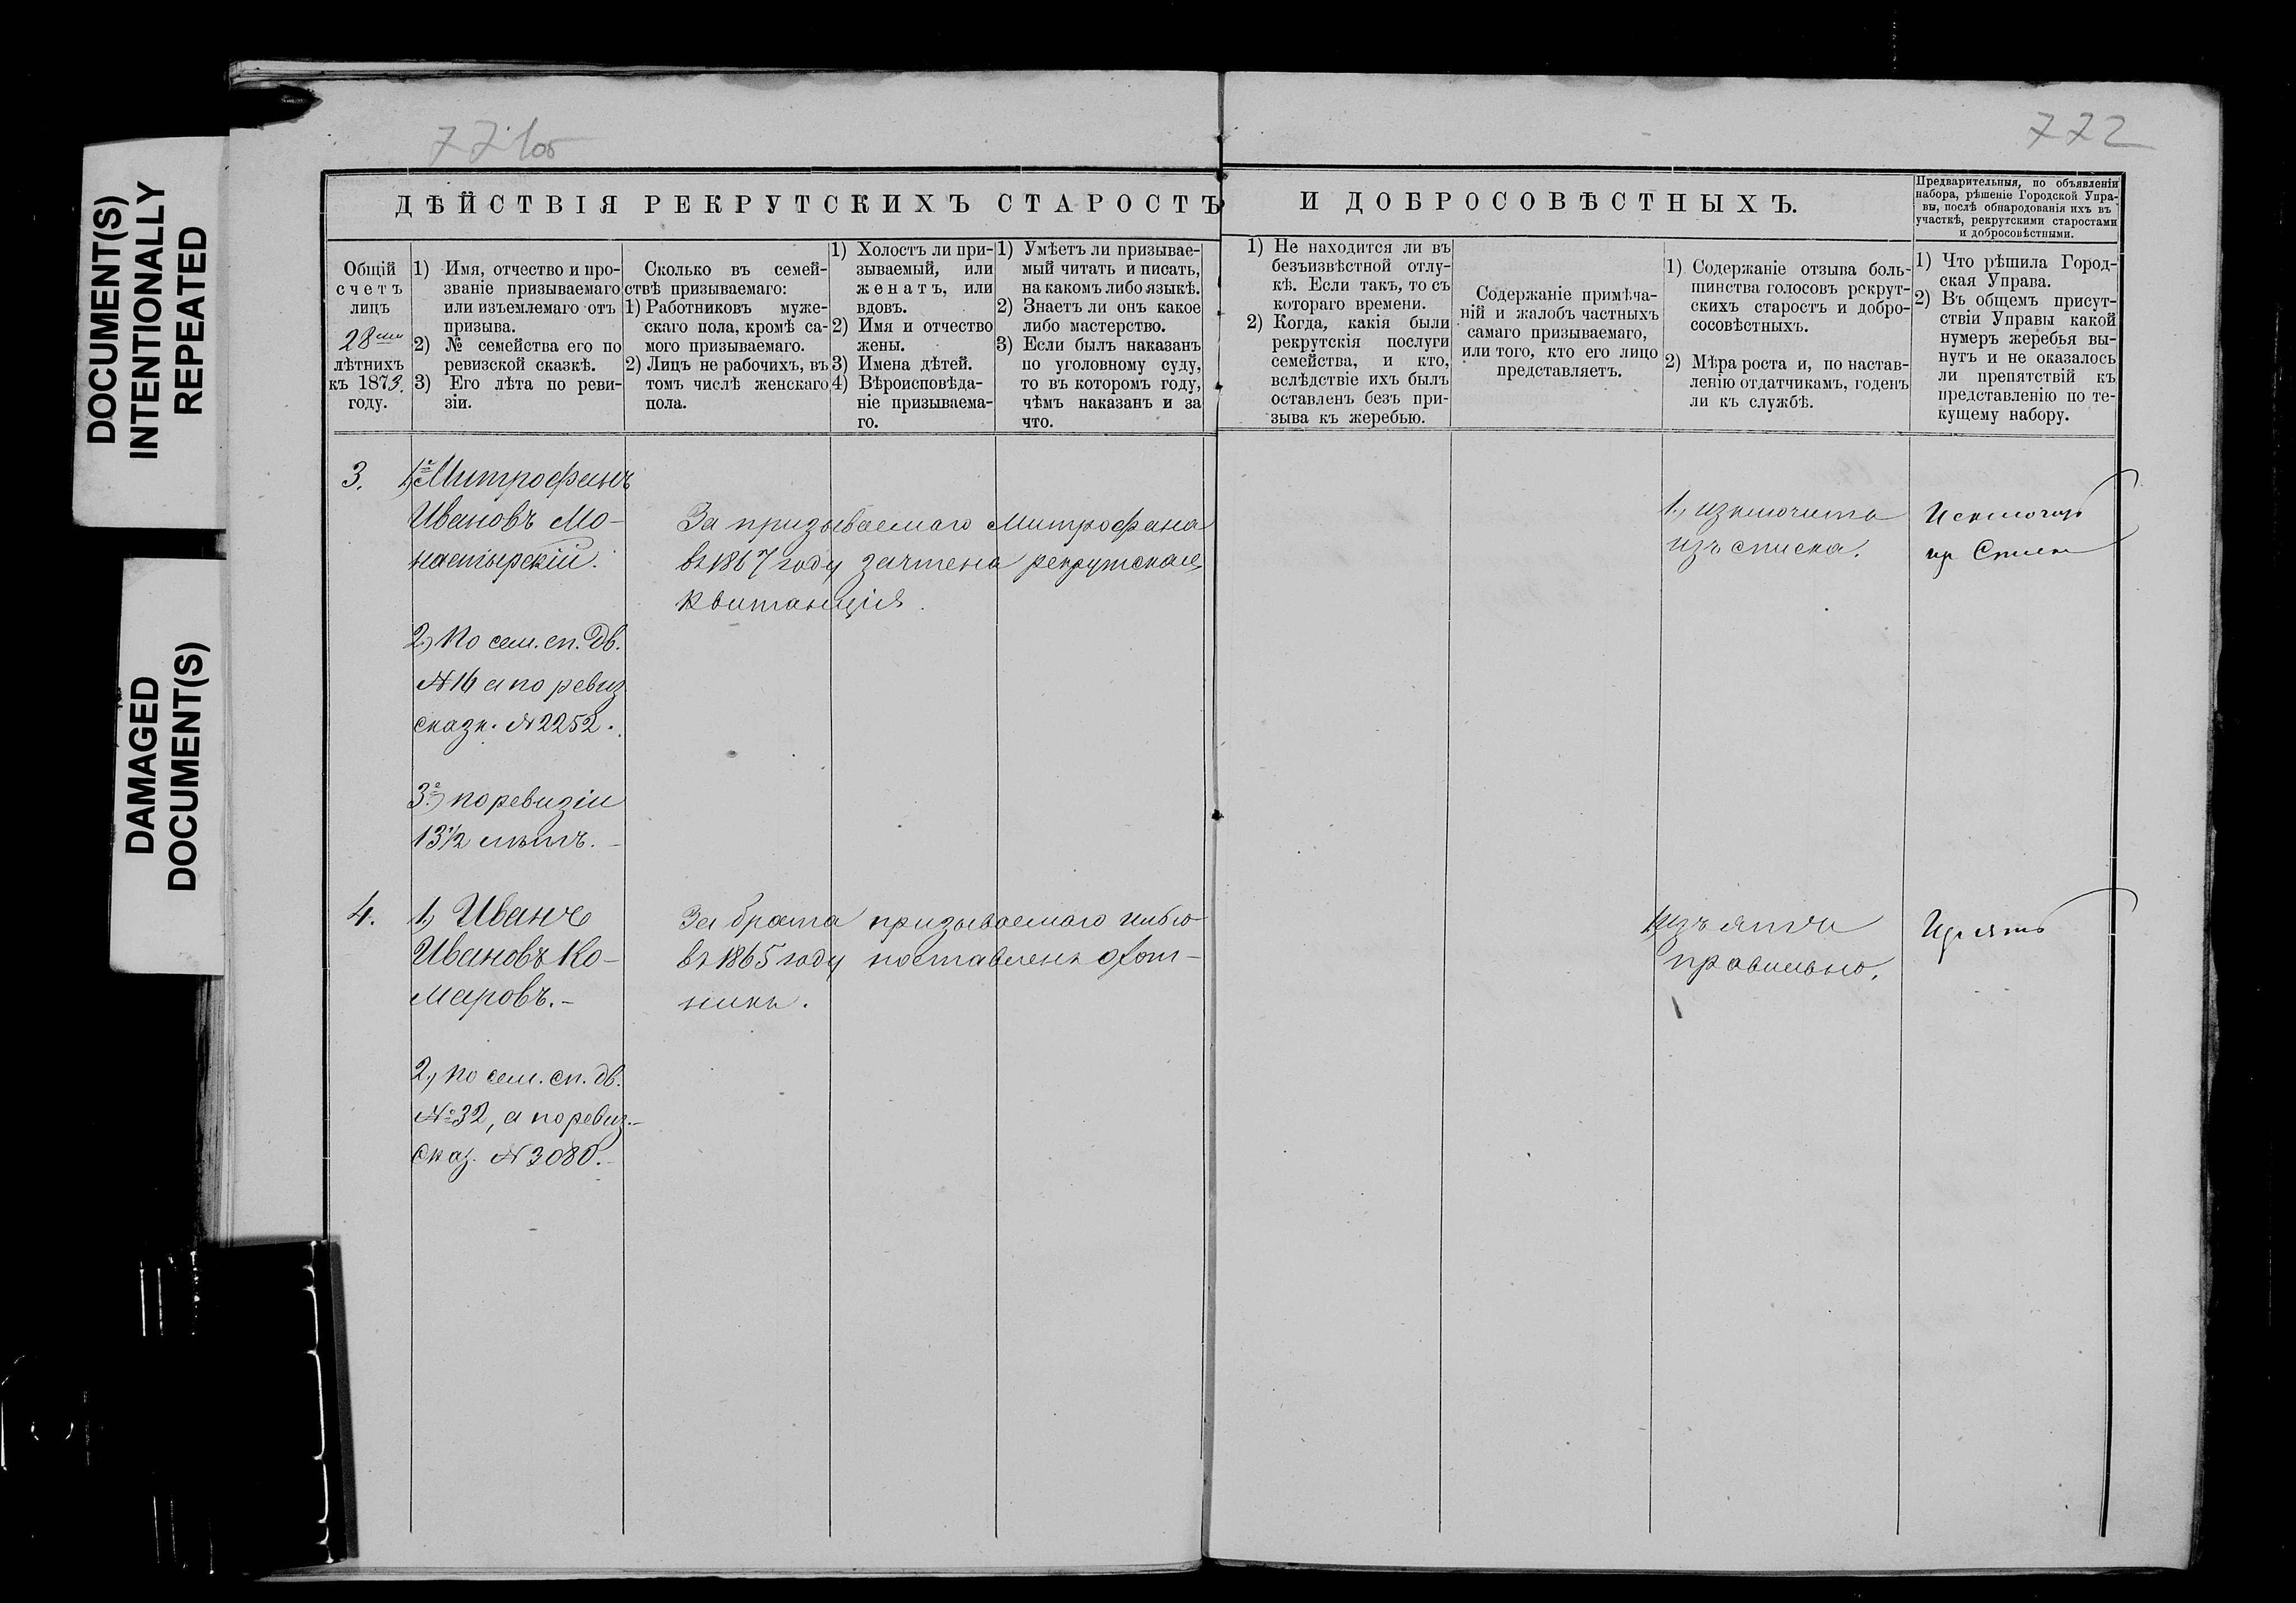 DOCUMENT(S)
INTENTIONALLY
REPEATED
DAMAGED
DOCUMENT(S)
771об
772
ДѢЙСТВІЯ РЕКРУТСКИХЪ СТАРОСТЪ
И ДОБРОСОВѢСТНЫХЪ.
Предварительныя, по объявленіи
набора, рѣшеніе Городской Упра-
вы, послѣ обнародованія ихъ въ
участкѣ, рекрутскими старостами
и добросовѣстными.
Общій
счетъ
лицъ
28ми
лѣтнихъ
къ 1873.
году.
1) Имя, отчество и про-
званіе призываемаго
или изъемлемаго отъ
призыва.
2) № семейства его по
ревизской сказкѣ.
3) Его лѣта по реви-
зіи.
Сколько въ семей-
ствѣ призываемаго:
1) Работниковъ муже-
скаго пола, кромѣ са-
мого призываемаго.
2) Лицъ не рабочихъ, въ
томъ числѣ женскаго
пола.
1) Холостъ ли при-
зываемый, или
женатъ, или
вдовъ.
2) Имя и отчество
жены.
3) Имена дѣтей.
4) Вѣроисповѣда-
ніе призываема-
го.
1) Умѣетъ ли призывае-
мый читать и писать,
на какомъ либо языкѣ.
2) Знаетъ ли онъ какое
либо мастерство.
3) Если былъ наказанъ
по уголовному суду,
то въ которомъ году,
чѣмъ наказанъ и за
что.
1) Не находится ли въ
безъизвѣстной отлу-
кѣ. Если такъ, то съ
котораго времени.
2) Когда, какія были
рекрутскія послуги
семейства, и кто,
вслѣдствіе ихъ былъ
оставленъ безъ при-
зыва къ жеребью.
Содержаніе примѣча-
ній и жалобъ частныхъ
самаго призываемаго,
или того, кто его лицо
представляетъ.
1) Содержаніе отзыва боль-
шинства голосовъ рекрут-
скихъ старостъ и добро-
совѣстныхъ.
2) Мѣра роста и, по настав-
ленію отдатчикамъ, годенъ
ли къ службѣ.
1) Что рѣшила Город-
ская Управа.
2) Въ общемъ присут-
ствіи Управы какой
нумеръ жеребья вы-
нутъ и не оказалось
ли препятствій къ
представленію по те-
кущему набору.
3.
1) Митрофанъ
Ивановъ Мо-
настырскій.
2) По сем. сп. Дв.
№ 16 а по ревиз.
сказк. № 2252.
3) по ревизіи
13½ лѣтъ.
За призываемаго Митрофана
въ 1867 году зачтена рекрутская
Квитанція.
1) изключить
изъ списка.
4.
1) Иванъ
Ивановъ Ко-
маровъ.
2) по сем. сп. дв.
№ 32, а по ревиз.
Сказ. № 3080.
За брата призываемаго
въ 1865 году поставленъ охот-
никъ.
1) изъятъ
правильно.
Изъять